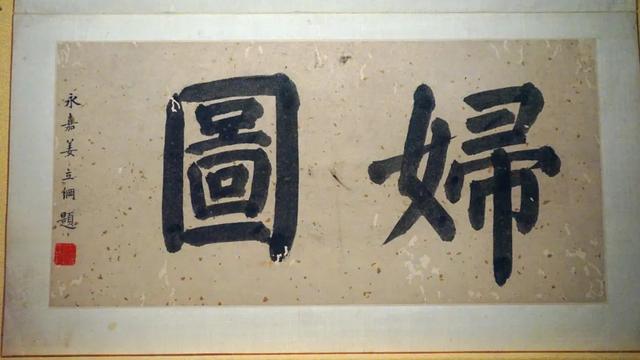 婦圖
永嘉姜立綱題